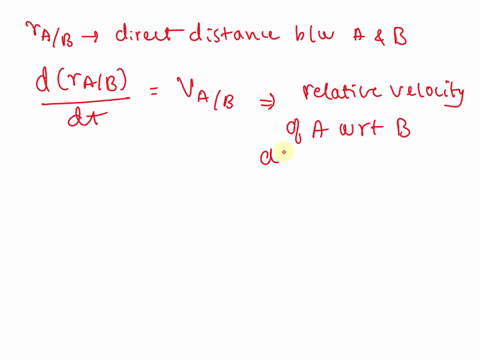 rA/B → direct distance b/w A & B
d(rA/B)/dt = VA/B ⇒ relative velocity
of A wrt B
d